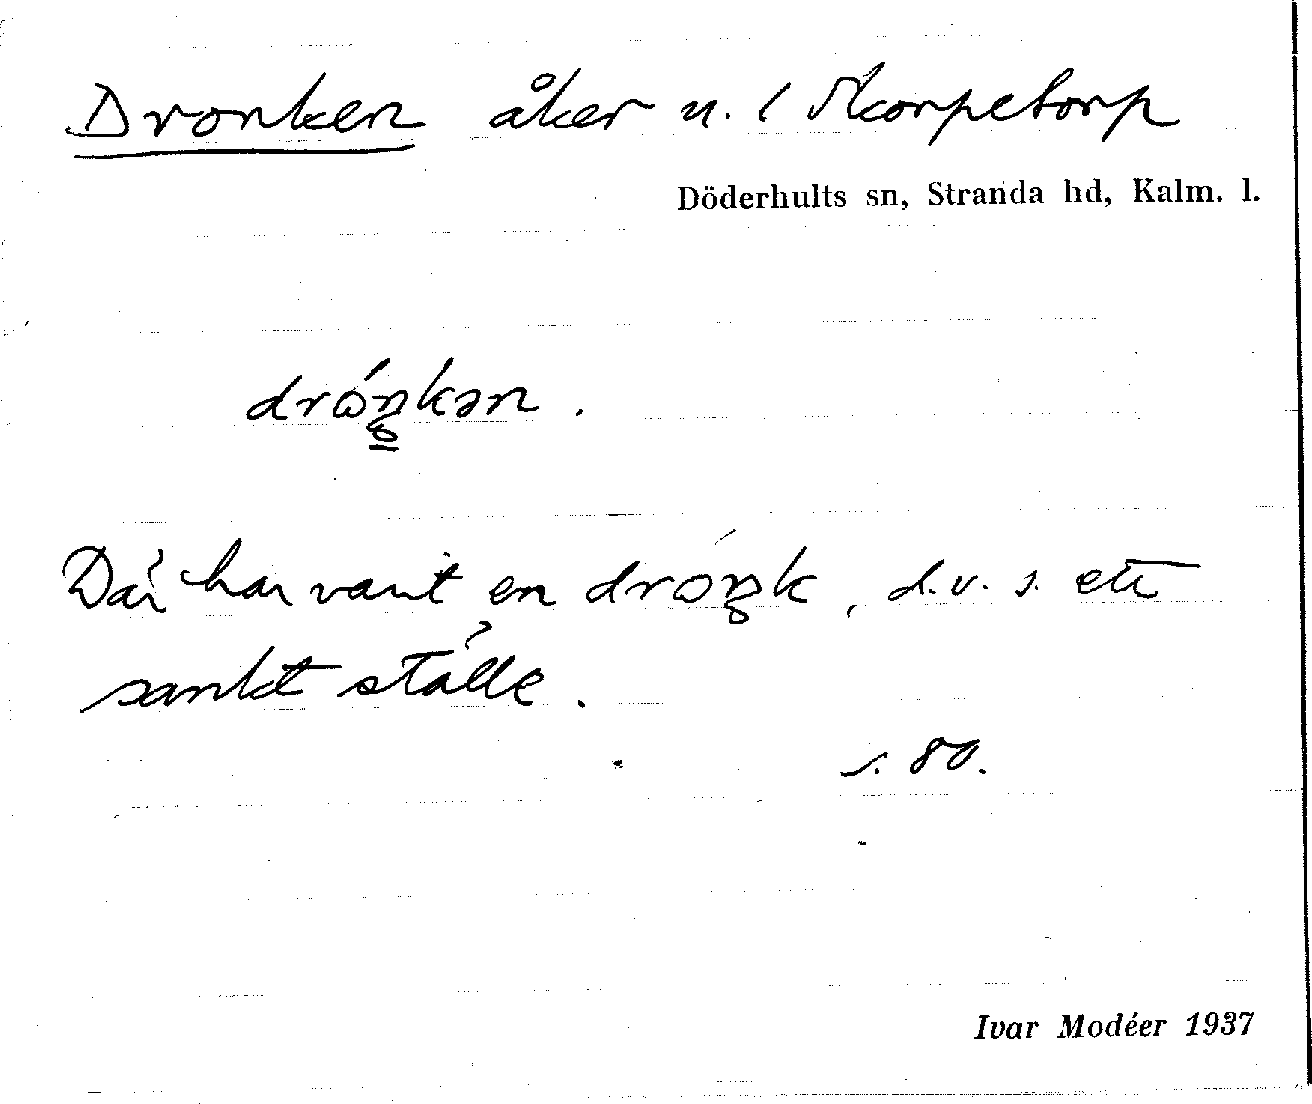 Dronken åker u. / Skorpetorp
Döderhults sn, Stranda hd, Kalm. l.
dróŋkən.
Där har varit en dróŋk, d.v.s. ett
sankt ställe.
s. 80.
Ivar Modéer 1937